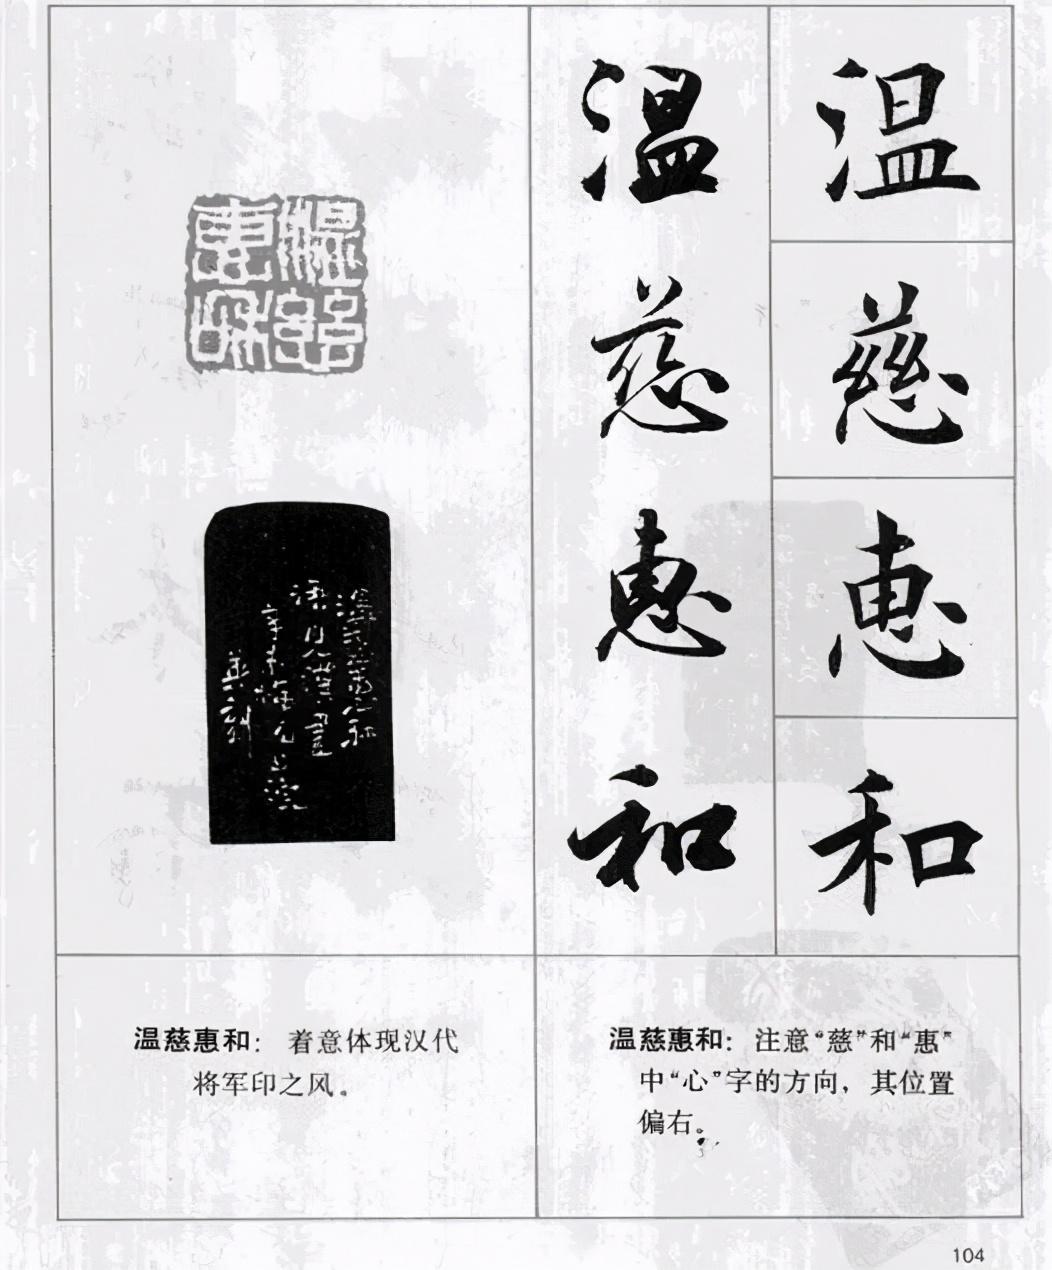 温
慈
惠
和
温
慈
惠
和
温慈惠和
温慈惠和：着意体现汉代
将军印之风。
温慈惠和：注意“慈”和“惠”
中“心”字的方向，其位置
偏右。
104